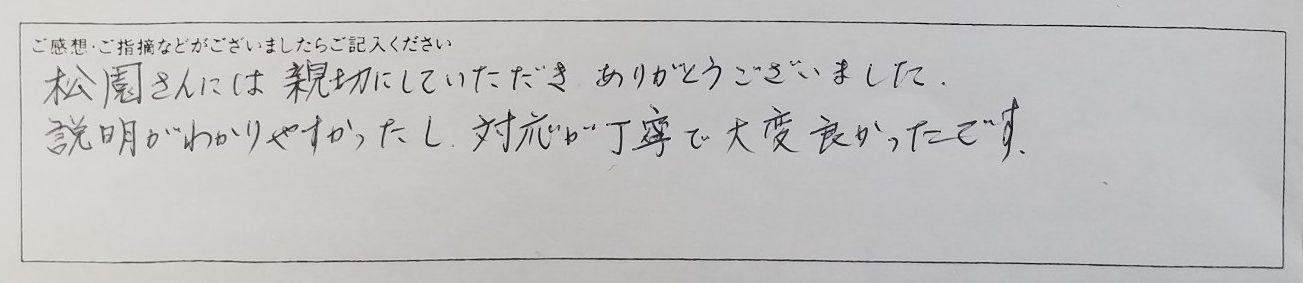 ご感想・ご指摘などがございましたらご記入ください
松園さんには親切にしていただき、ありがとうございました。
説明がわかりやすかったし、対応が丁寧で大変良かったです。